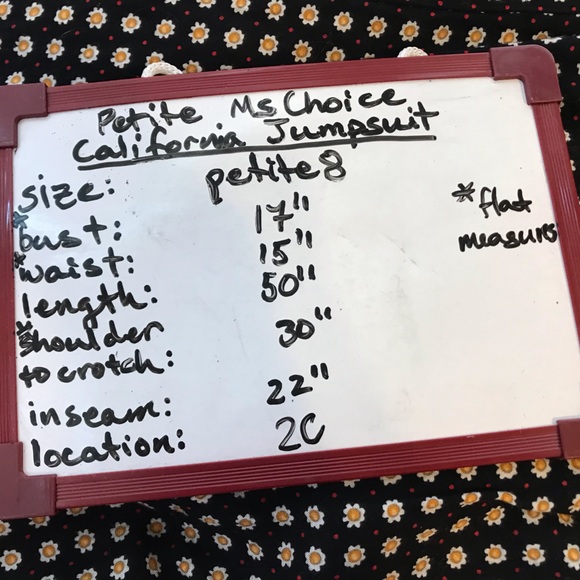 Petite Ms Choice
California Jumpsuit
size: petite 8
*bust: 17"
*waist: 15"
length: 50"
*shoulder
to crotch: 30"
inseam: 22"
location: 2C
*flat
measure